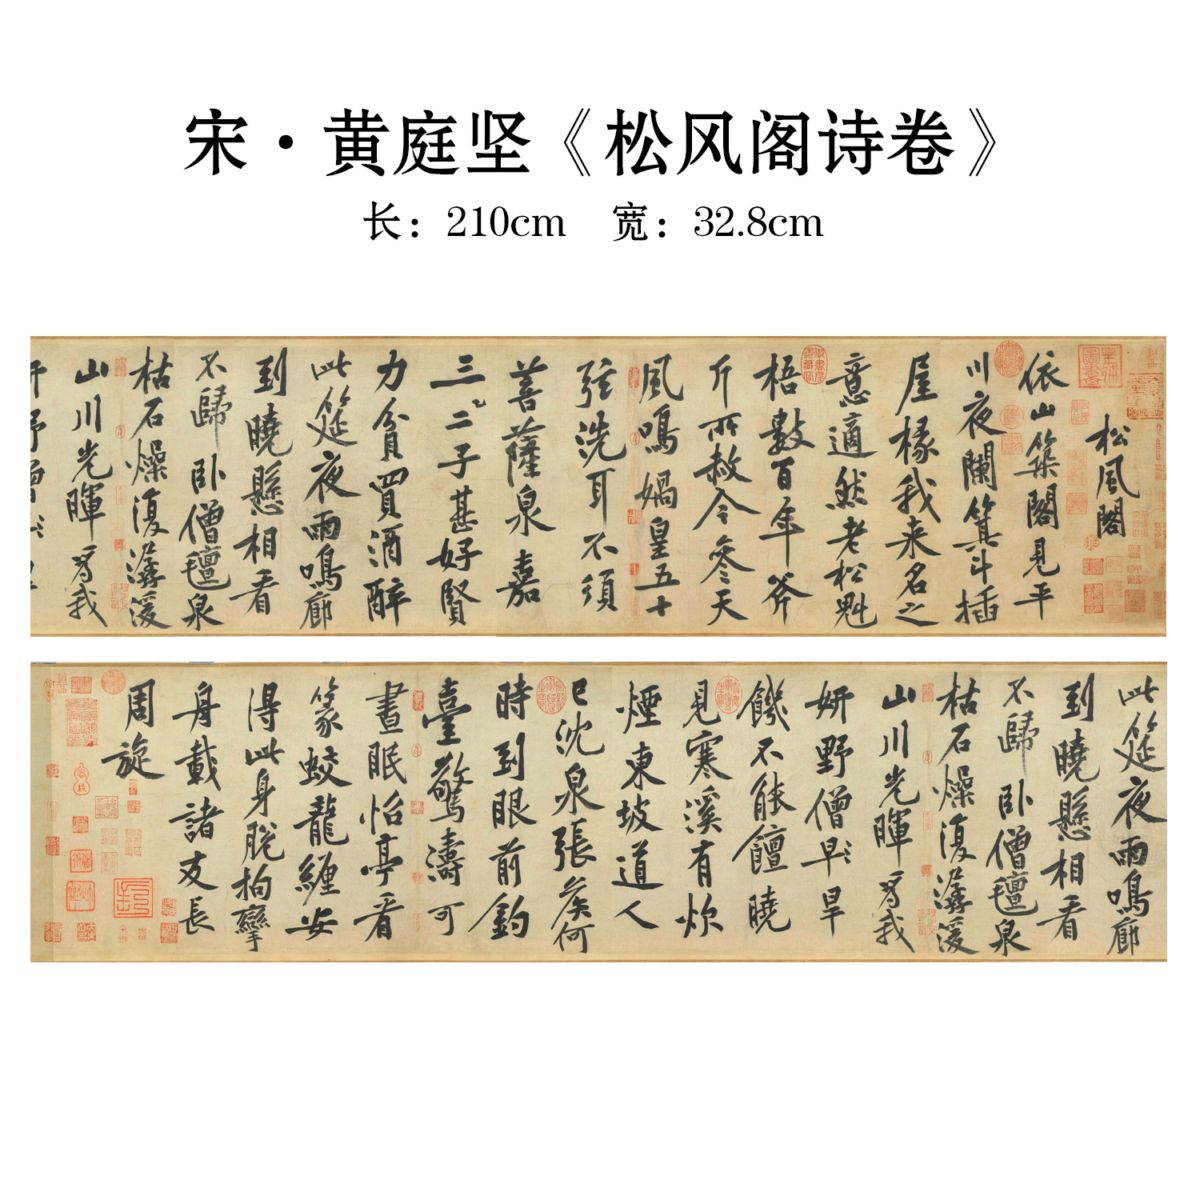 宋·黄庭坚《松风阁诗卷》
长：210cm 宽：32.8cm
松風閣
依山築閣見平
川夜闌箕斗插
屋椽我来名之
意適然老松魁
梧數百年斧
斤所赦今參天
風鳴媧皇五十
弦洗耳不須
菩薩泉嘉
三二子甚好賢
力貧買酒醉
此筵夜雨鳴廊
到曉懸相看
不歸卧僧氊泉
枯石燥復潺湲
山川光暉為我
此筵夜雨鳴廊
到曉懸相看
不歸卧僧氊泉
枯石燥復潺湲
山川光暉為我
妍野僧早旱
饑不能饘曉
見寒溪有炊
煙東坡道人
已沈泉張侯何
時到眼前釣
臺驚濤可
晝眠怡亭看
篆蛟龍纏安
得此身脫拘攣
舟載諸友長
周旋